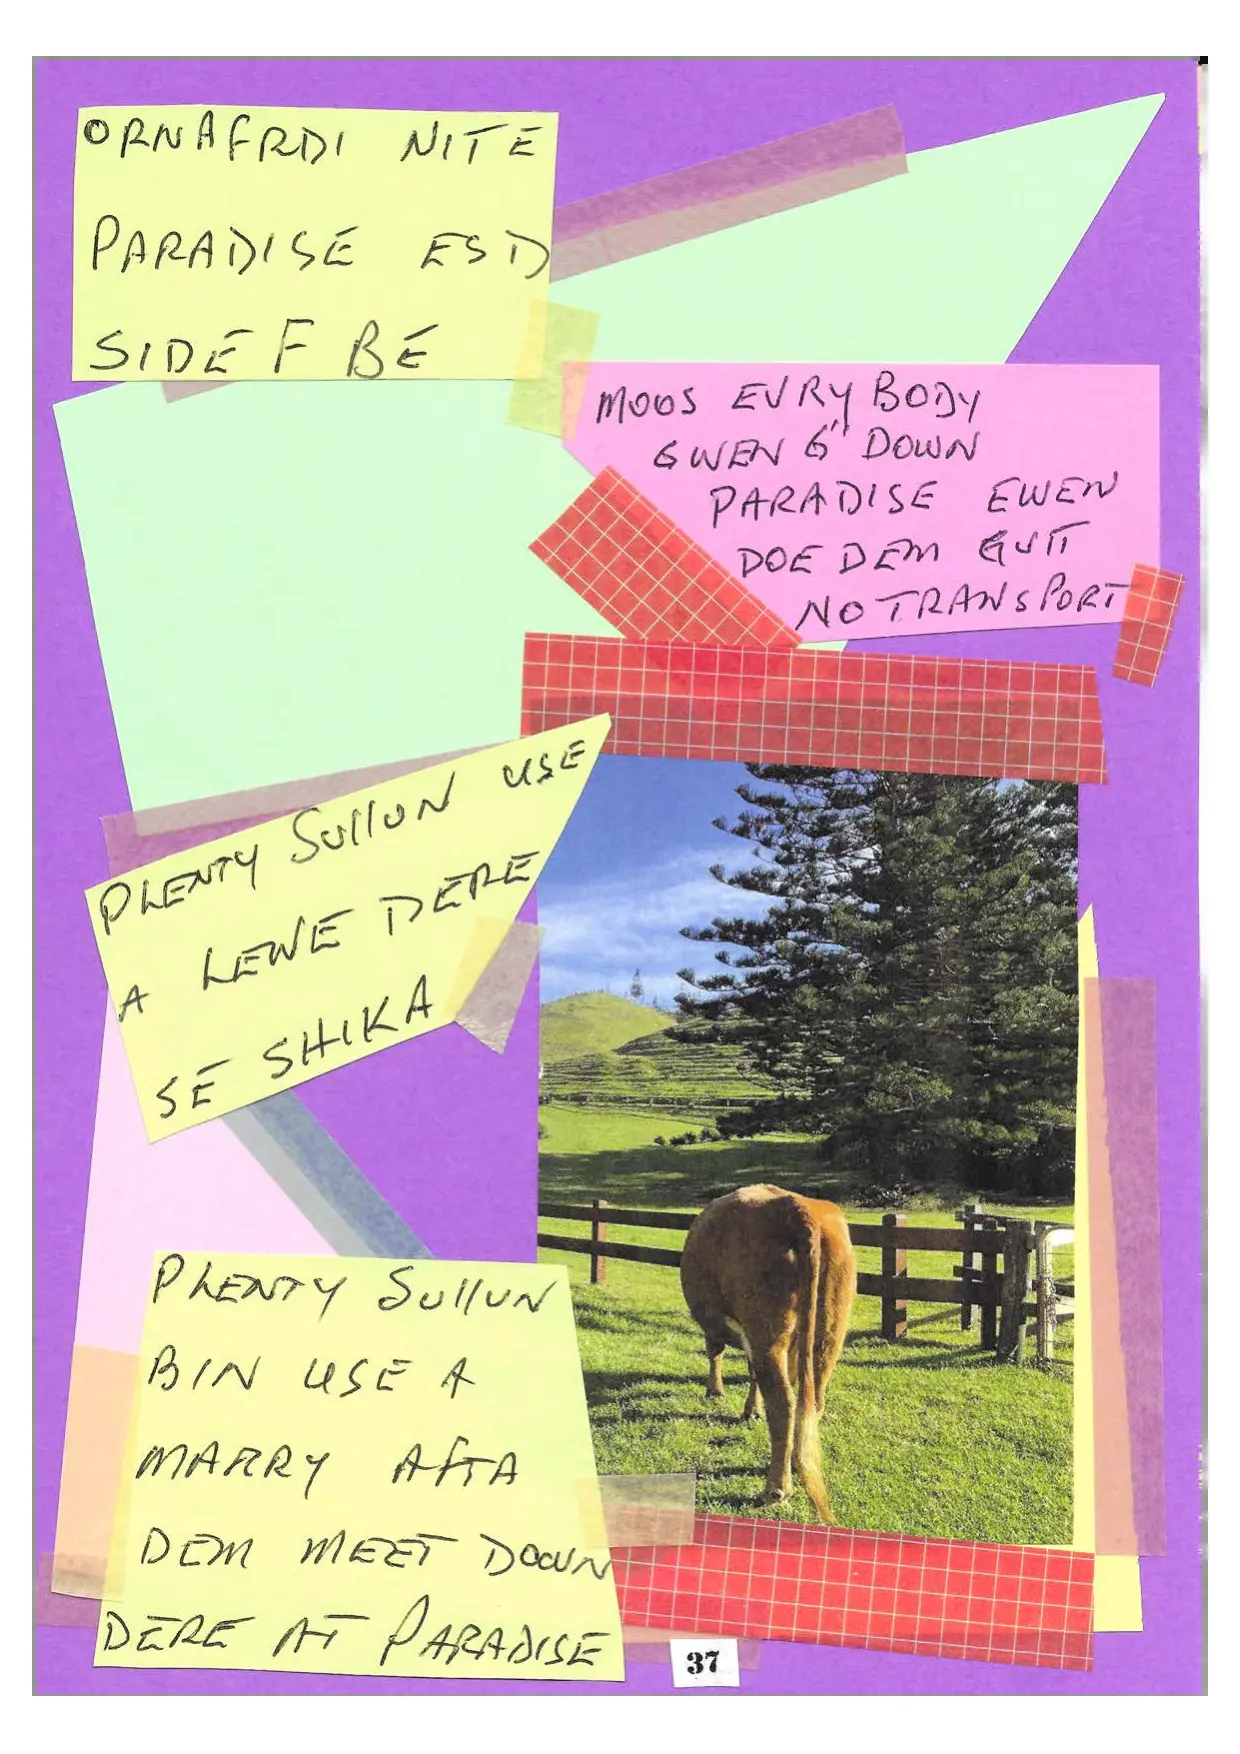 ORNAFRDI NITE
PARADISE ES D
SIDE F BE
MOOS EVRY BODY
GWEN G" DOWN
PARADISE EWEN
DOE DEM GUTT
NO TRANSPORT
PLENTY SULLUN USE
A LEWE DERE
SE SHIKA
PLENTY SULLUN
BIN USE A
MARRY AFTA
DEM MEET DOWN
DERE AT PARADISE
37